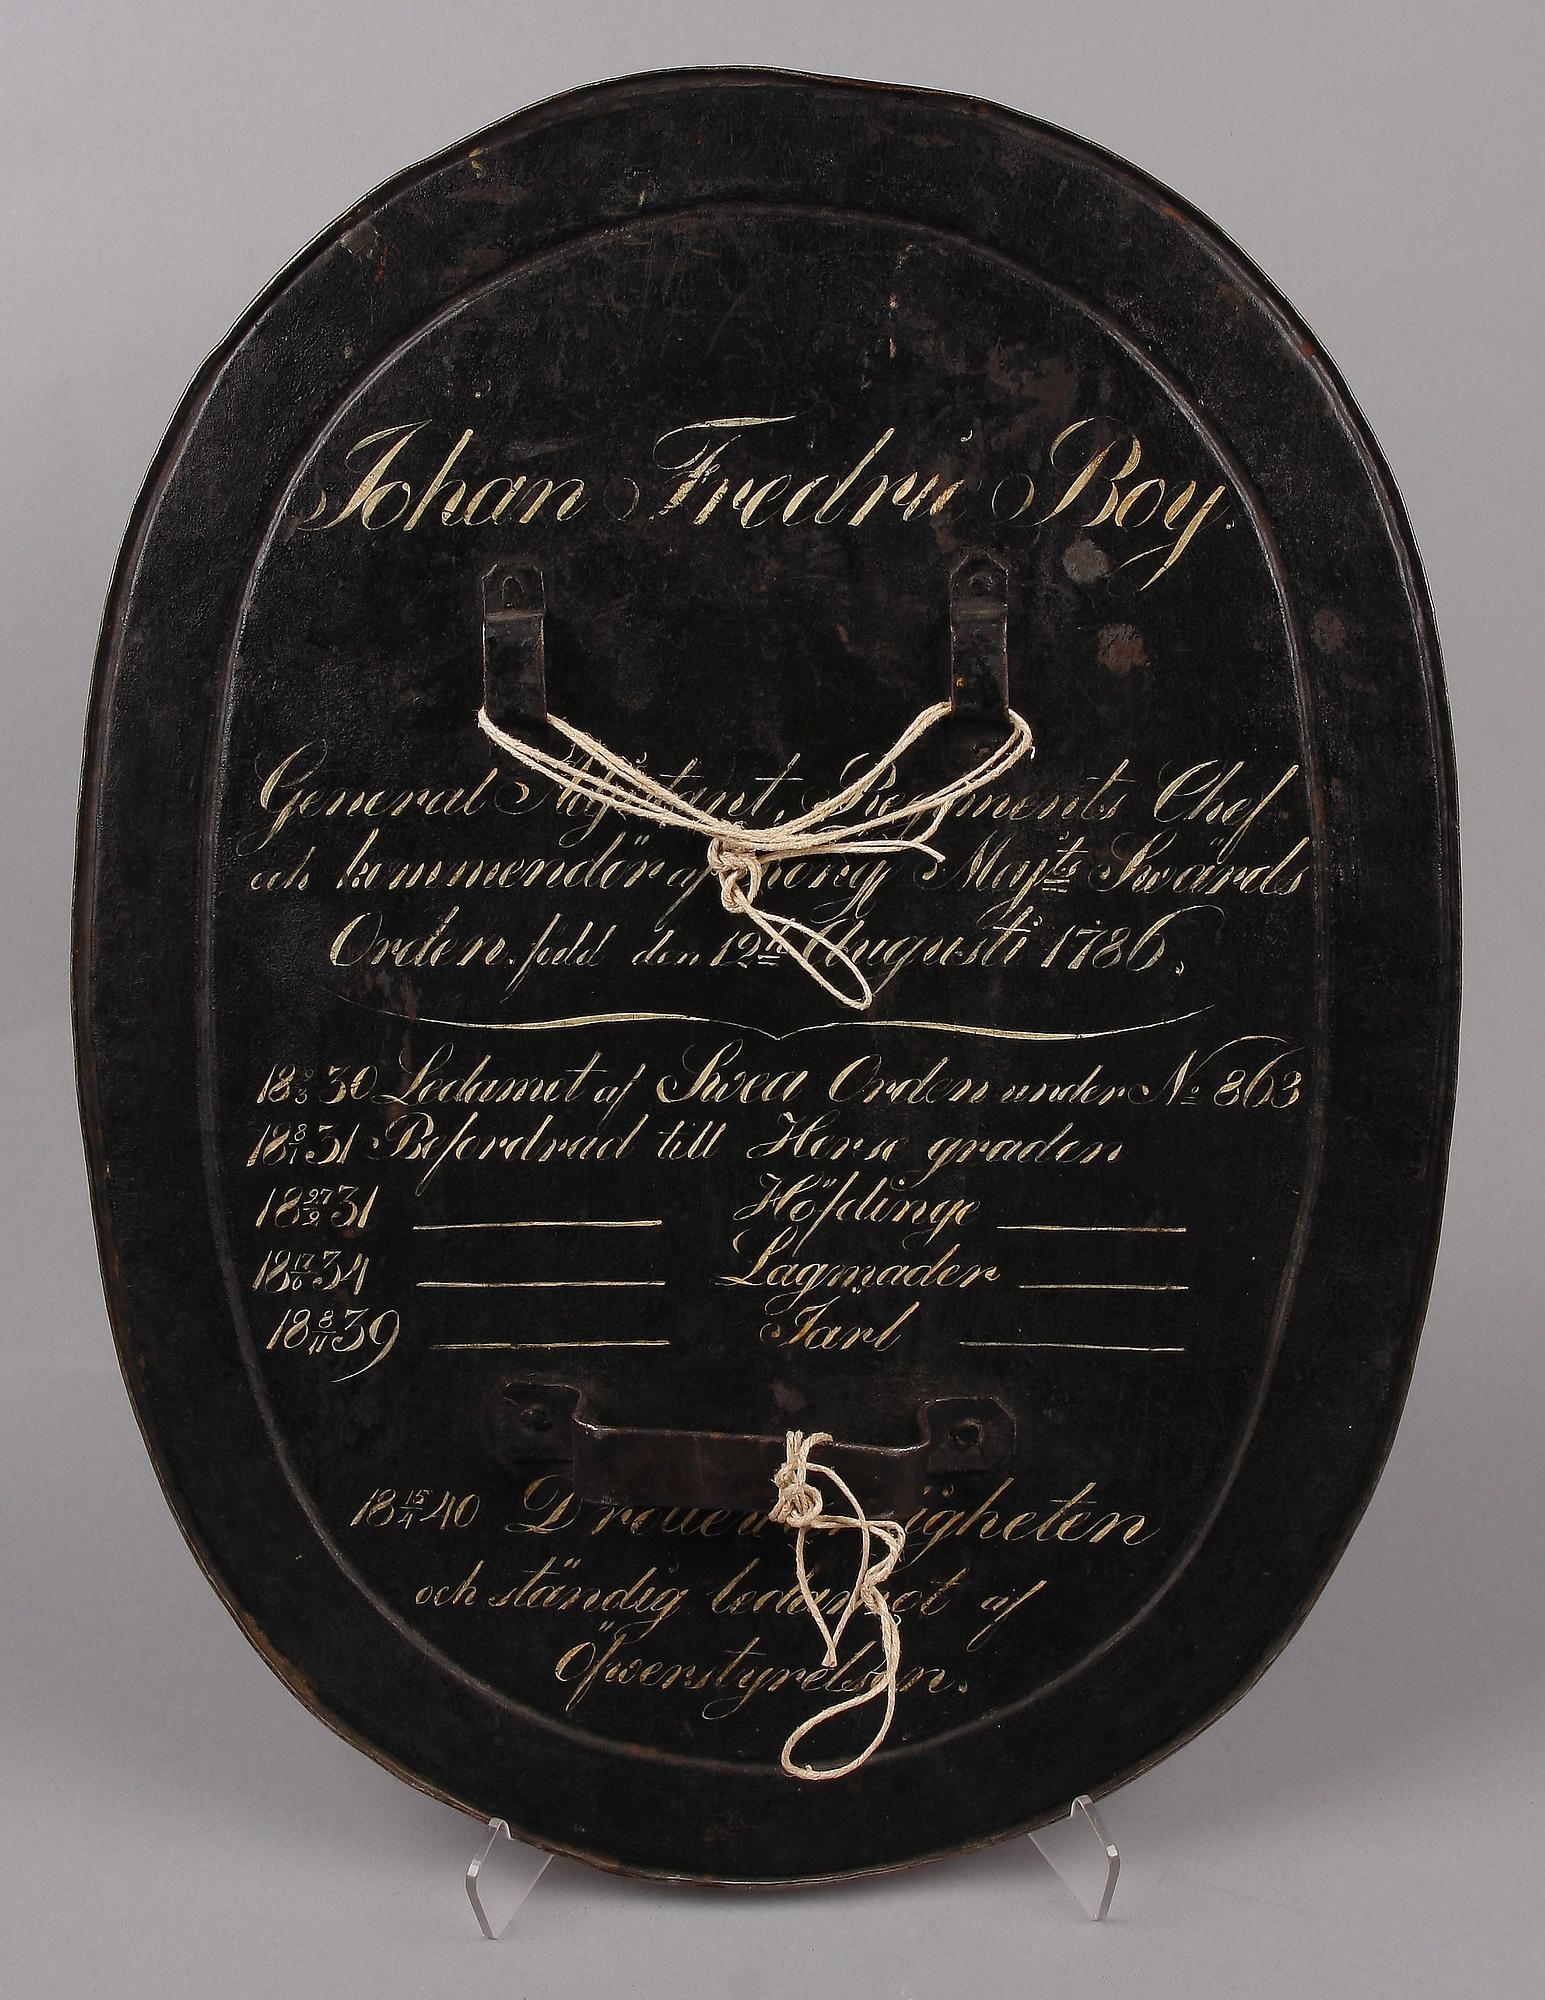 Johan Fredric Boy.
General Adjutant, Regiments Chef
och kommendör af Kongl Majts Swärds
Orden. född den 12te Augusti 1786.
18 30 Ledamot af Swea Orden under No 863
18 8/1 31 Befordrad till Herse graden
18 27/2 31 Höfdinge
18 17/6 34 Lagmader
18 8/11 39 Jarl
18 15/4 40
och ständig ledamot af
Öfwerstyrelsen.